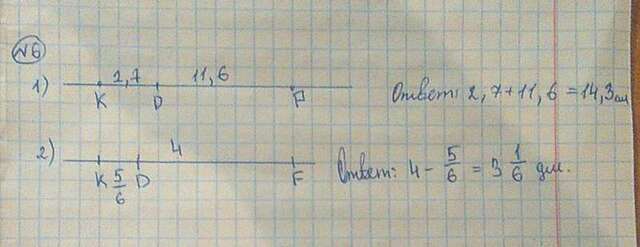 №6
1) 2,7 11,6
K D F Ответ: 2,7+11,6=14,3см
2) 4
K 5/6 D F Ответ: 4 - 5/6 = 3 1/6 дм.